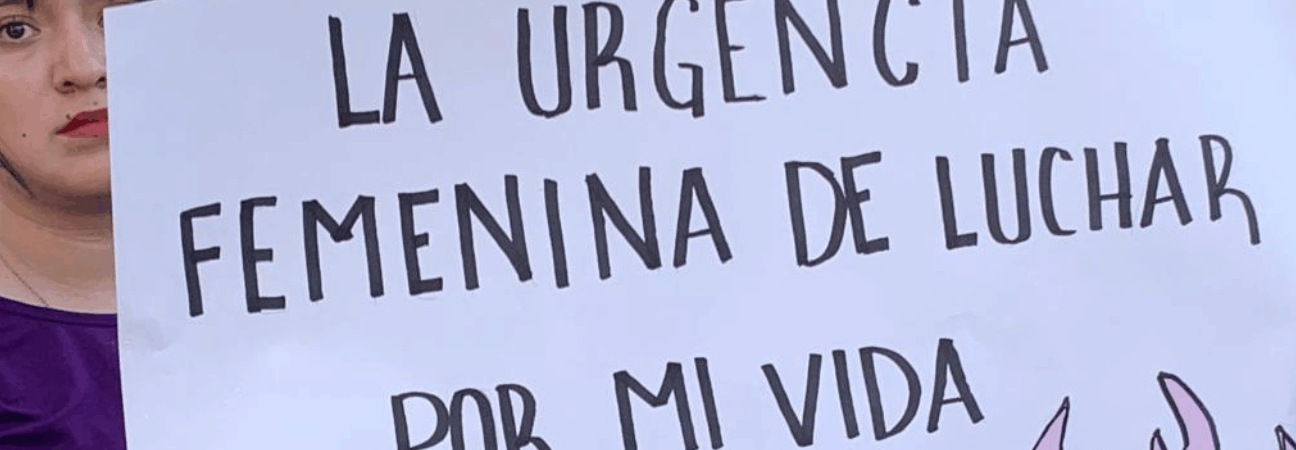 LA URGENCIA
FEMENINA DE LUCHAR
POR MI VIDA